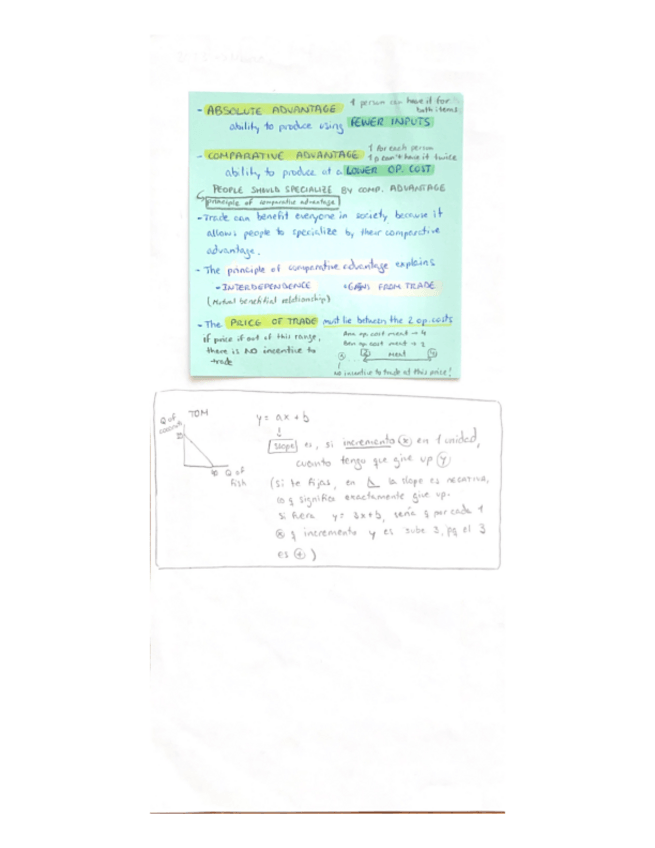 - ABSOLUTE ADVANTAGE 1 person can have it for both items
ability to produce using FEWER INPUTS
- COMPARATIVE ADVANTAGE 1 for each person
1 p can't have it twice
ability to produce at a LOWER OP. COST
PEOPLE SHOULD SPECIALIZE BY COMP. ADVANTAGE
principle of comparative advantage
- Trade can benefit everyone in society because it
allows people to specialize by their comparative
advantage.
- The principle of comparative advantage explains
- INTERDEPENDENCE - GAINS FROM TRADE
(Mutual beneficial relationship)
- The PRICE OF TRADE must be between the 2 op. costs
if price if out of this range,
there is NO incentive to
trade
op. cost meat → 4
op. cost meat → 2
meat
no incentive to trade at this price!
TOM
Q of
coconuts
Q of
fish
y = ax + b
slope es, si incremento x en 1 unidad,
cuanto tengo que give up y
(si te fijas, en la slope es negativa,
lo q significa exactamente give up.
si fuera y = 3x+b, sería q por cada 1
x q incremento y es sube 3, pq el 3
es +)